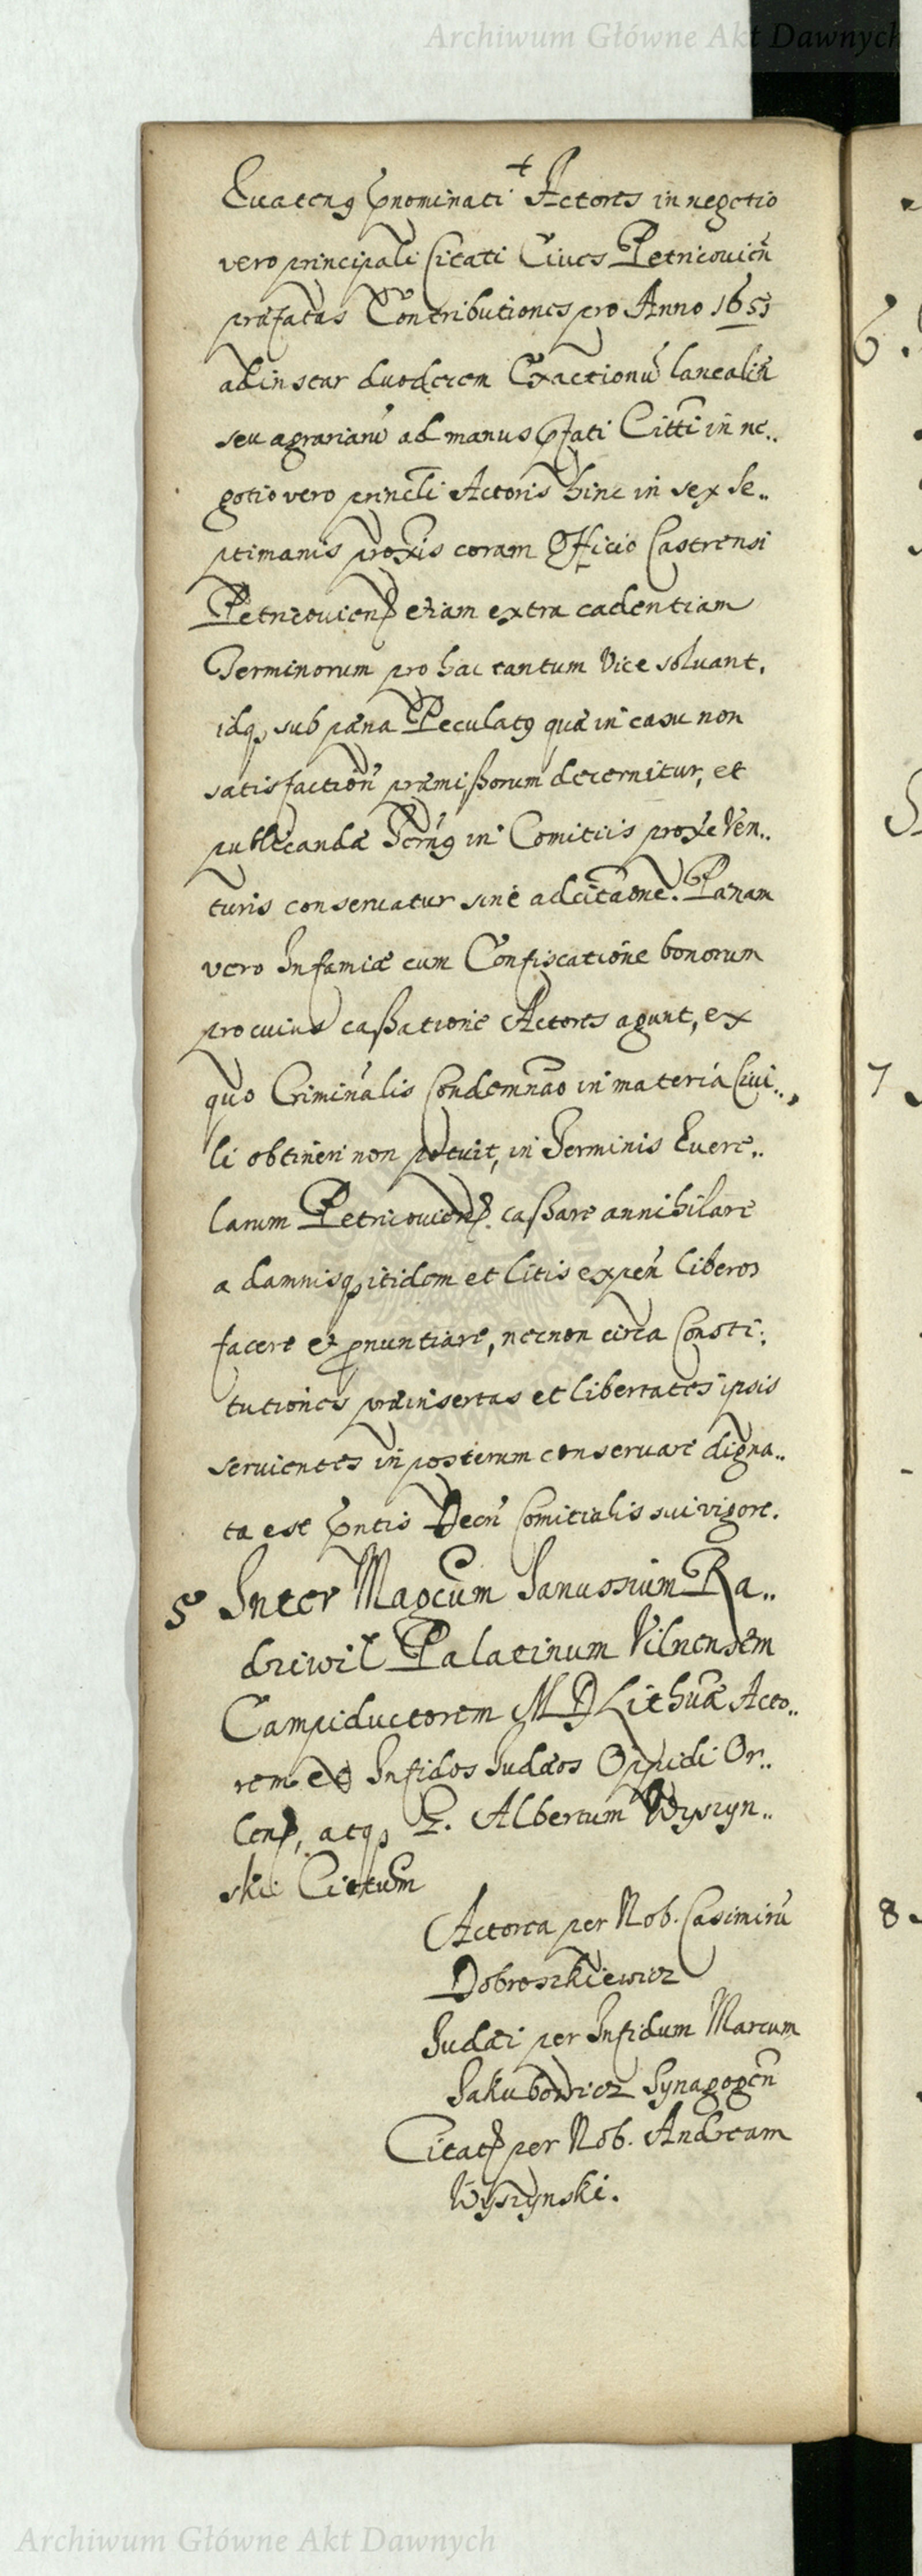 Archiwum Główne Akt Dawnych
Quatenq pnominati + Actores in negotio
vero principali Citati Cives Petricovień
præfatas Contributiones pro Anno 1653
ad instar duodecem Exactionu lanealiu
seu agrariaru ad manus pfati Citti in ne..
gotio vero princli Actoris hinc in sex Se..
ptimanis proxis coram Officio Castrensi
Petricovien etiam extra cadentiam
Terminorum pro hac tantum Vice solvant,
idq sub pæna Peculatq quæ in casu non
satisfaction præmissorum decernitur, et
publicandæ Termq in Comitiis proxe Ven..
turis conservatur sine adcitaone. Pænam
vero Infamiæ cum Confiscatione bonorum
pro cuius cassatione Actores agunt, ex
quo Criminalis Condemnao in materia Civi..
li obtineri non potuit, in Terminis Quere..
larum Petricovien. cassare annihilare
a damnisq itidem et litis expen liberos
facere et pnuntiare, necnon circa Consti:
tutiones præinsertas et libertates ipsis
servientes in posterum conservare digna..
ta est pntis Decri Comitialis sui vigore.
5 Inter Magcum Janussium Ra..
dziwił Palatinum Vilnensem
Campiductorem M D Lithuæ Acto..
rem et Infidos Judæos Oppidi Or..
len, atq G. Albertum Wyszyn..
ski Cittum
Actorea per Nob. Casimiru
Dobroszkiewicz
Judæi per Infidum Marcum
Jakubowicz Synagogen
Citat per Nob. Andream
Wyszynski.
6.
7
8
Archiwum Główne Akt Dawnych